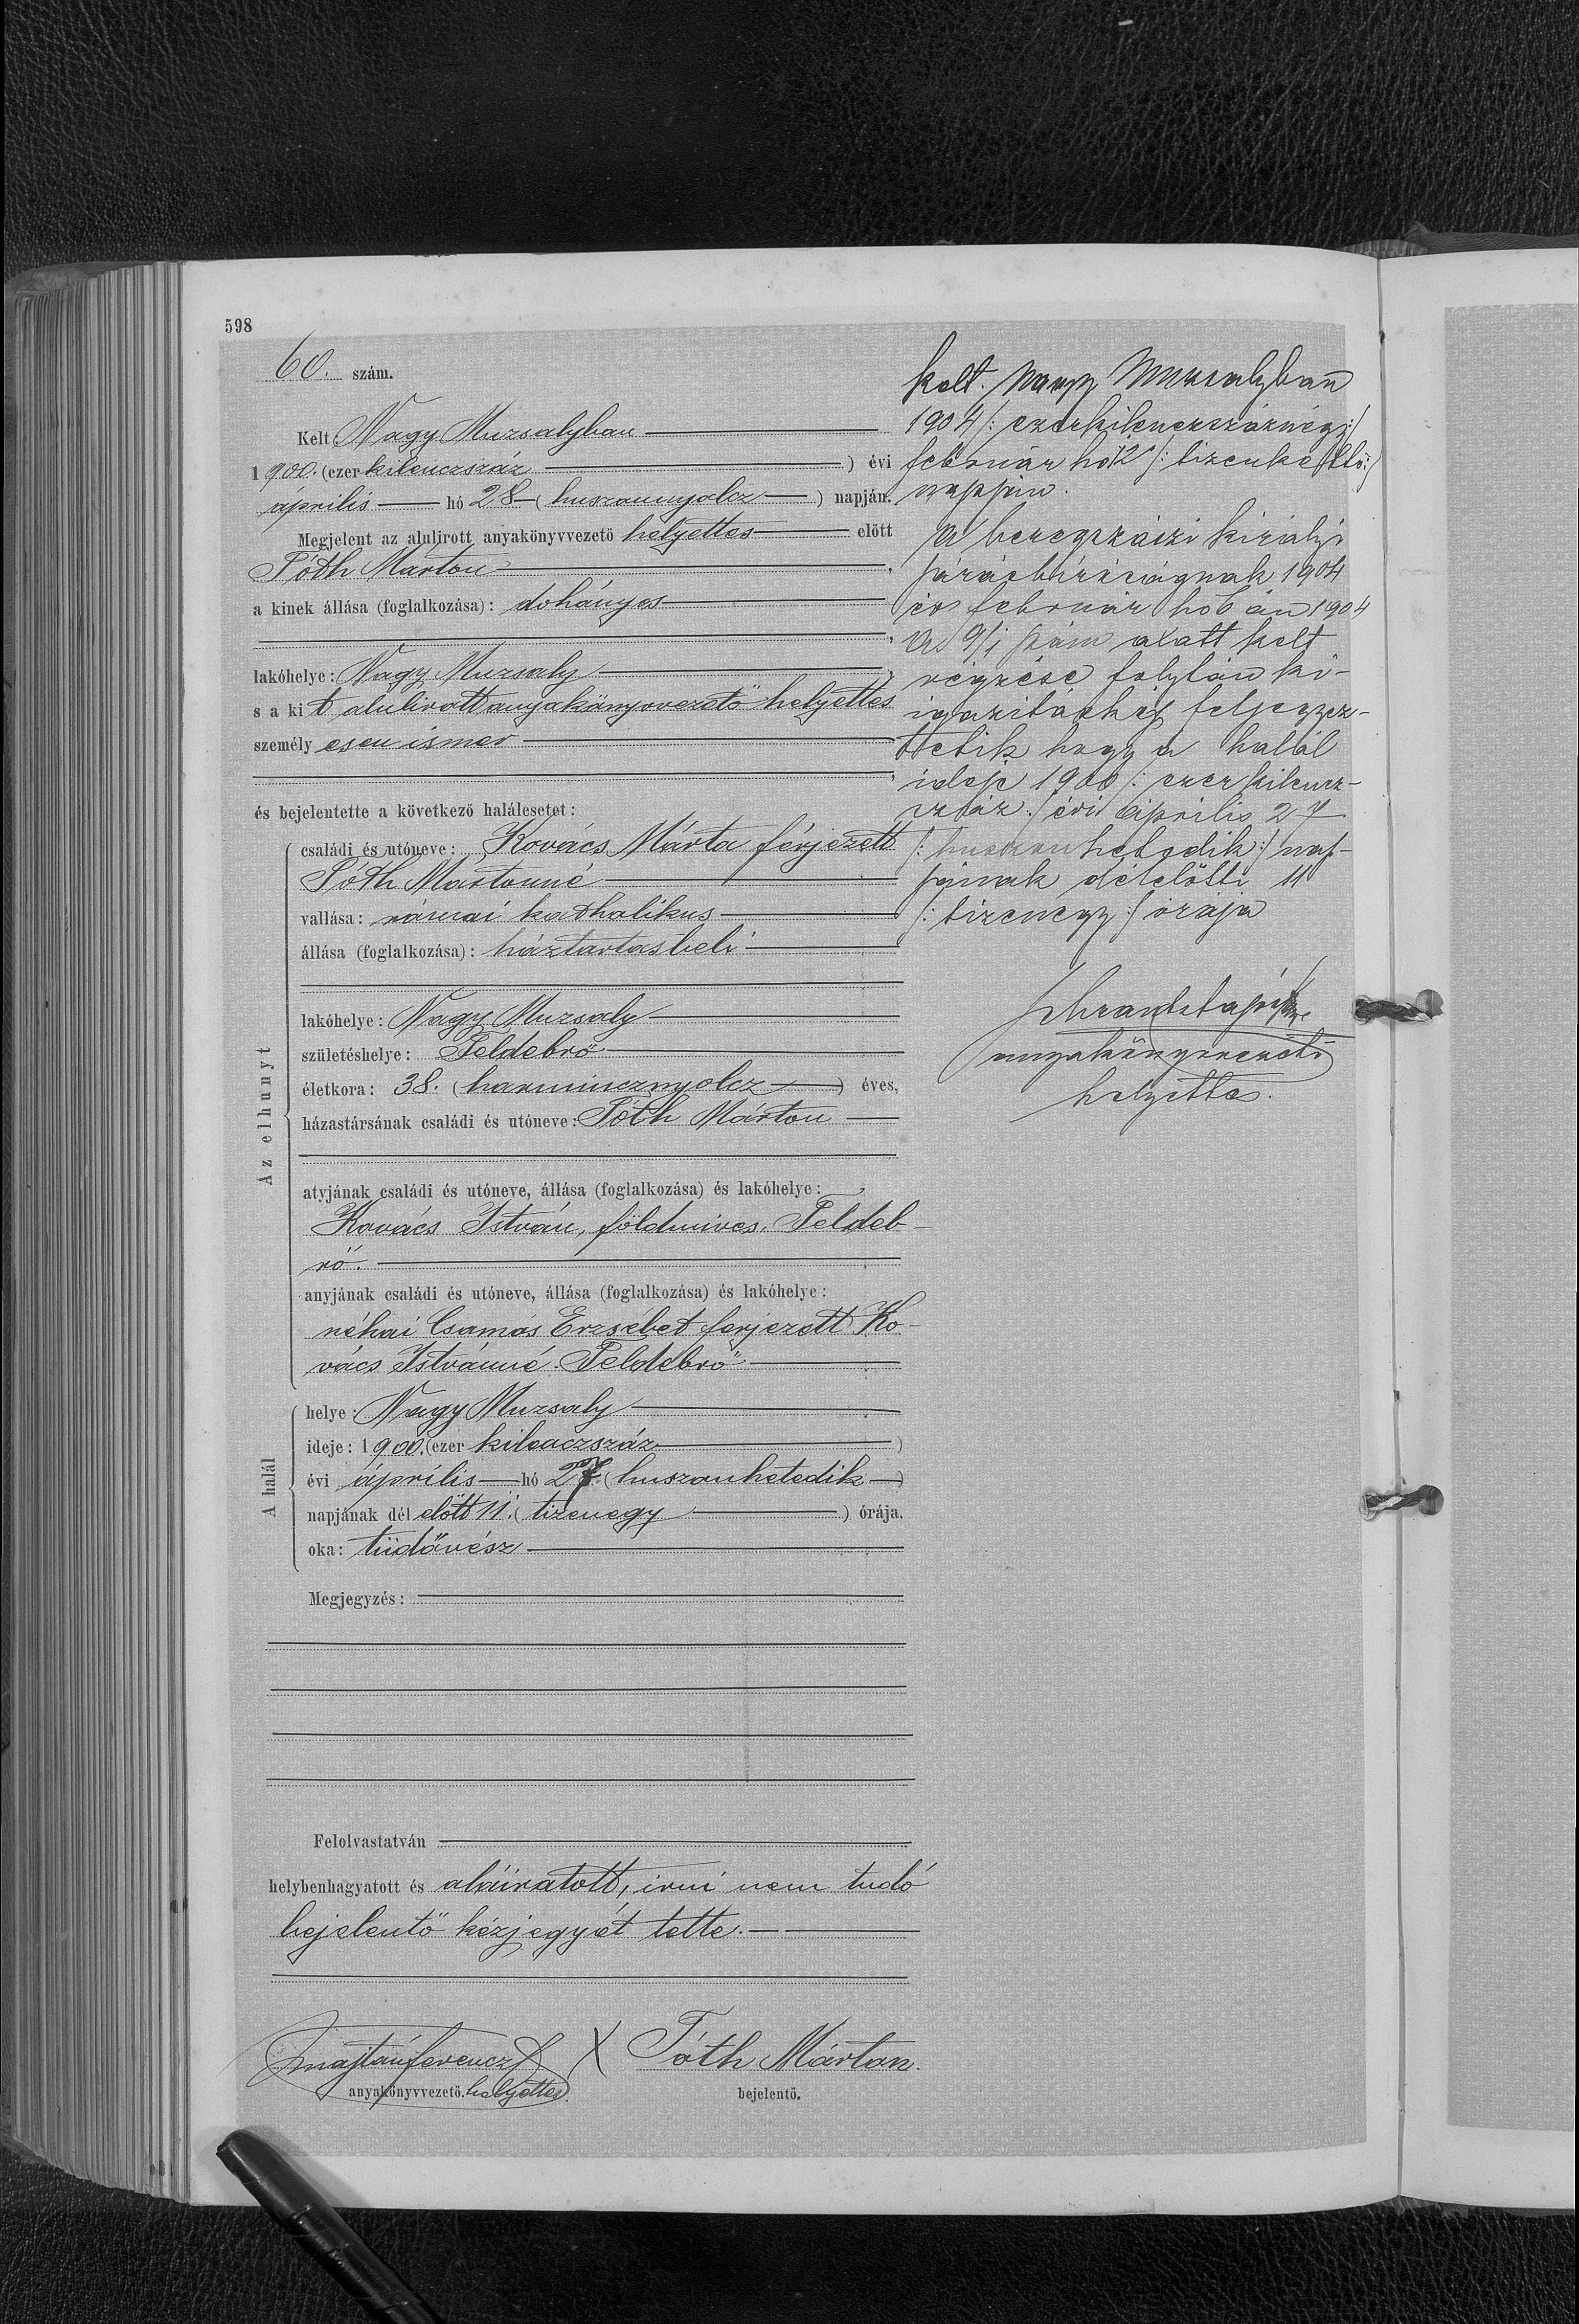 598
60. szám.
Kelt Nagy Muzsalyban
1900. (ezer kilenczszáz) évi
április hó 28 (huszonnyolcz) napján.
Megjelent az alulirott anyakönyvvezető helyettes előtt
Tóth Márton
a kinek állása (foglalkozása): dohányos
lakóhelye: Nagy Muzsaly
s a kit alulirott anyakönyvvezető helyettes
személyesen ismer
és bejelentette a következő halálesetet:
Az elhunyt
családi és utóneve: Kovács Márta férjezett
Tóth Mártonné
vallása: római katholikus
állása (foglalkozása): háztartásbeli
lakóhelye: Nagy Muzsaly
születéshelye: Feldebrő
életkora: 38. (harmincznyolcz) éves,
házastársának családi és utóneve: Tóth Márton
atyjának családi és utóneve, állása (foglalkozása) és lakóhelye:
Kovács István, földmives, Feldeb-
rő.
anyjának családi és utóneve, állása (foglalkozása) és lakóhelye:
néhai Csamas Erzsébet ferjezett Ko-
vács Istvánné Feldebrő
A halál
helye: Nagy Muzsaly
ideje: 1900. (ezer kilenczszáz)
évi április hó 27. (huszonhetedik)
napjának dél előtt 11. (tizenegy) órája.
oka: tüdővész
Megjegyzés:
Felolvastatván
helybenhagyatott és aláiratott, irni nem tudó
bejelentő kézjegyét tette.
Majtán Ferencz X Tóth Márton.
anyakönyvvezető. helyettes. bejelentő.
Kelt. Nagy Muzsalyban
1904 /: ezerkilenczszáznégy :/
február hó 12 /: tizenkettő :/
napján.
A beregszászi királyi
járásbíróságnak 1904
év február hó 6 án 1904
9/1 szám alatt kelt
végzése folytán ki-
igazitáskép feljegyez-
tetik hogy a halál
ideje 1900 /: ezer kilencz-
száz :/ évi április 27
/: huszonhetedik :/ nap-
jának délelőtti 11
/: tizenegy :/ órája
anyakönyvvezető
helyettes.